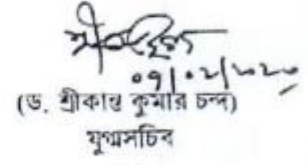 ০৭/০২/২০২০
(ড. শ্রীকান্ত কুমার চন্দ)
যুগ্মসচিব